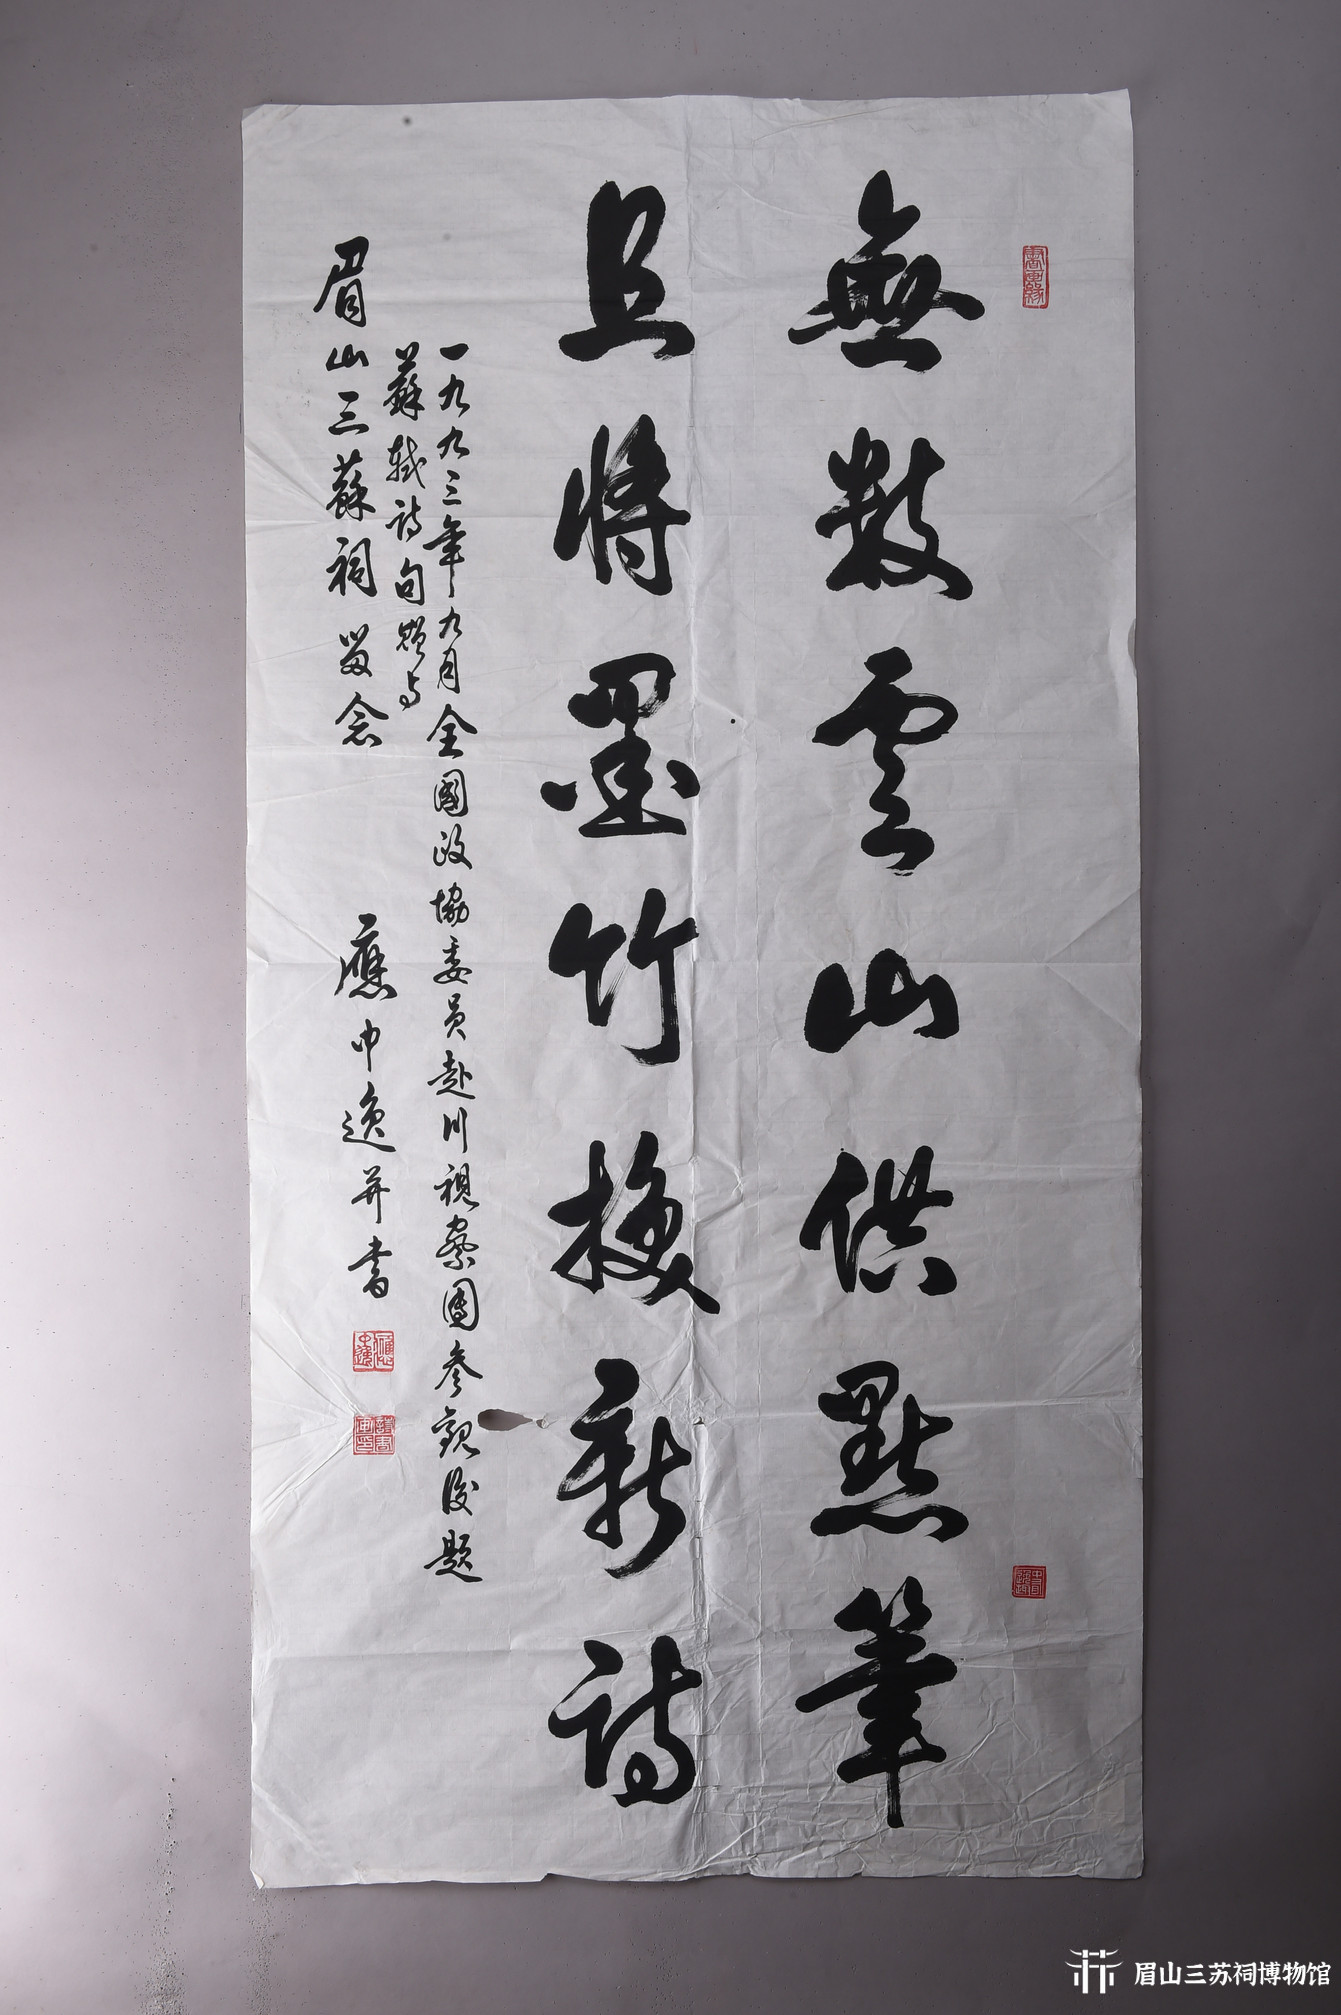 無數雲山供點筆
且將墨竹換新詩
一九九三年九月全國政協委員赴川視察團參觀後題
蘇軾詩句贈与
眉山三蘇祠留念
應中逸并書
應中逸
書画緣
眉山三苏祠博物馆